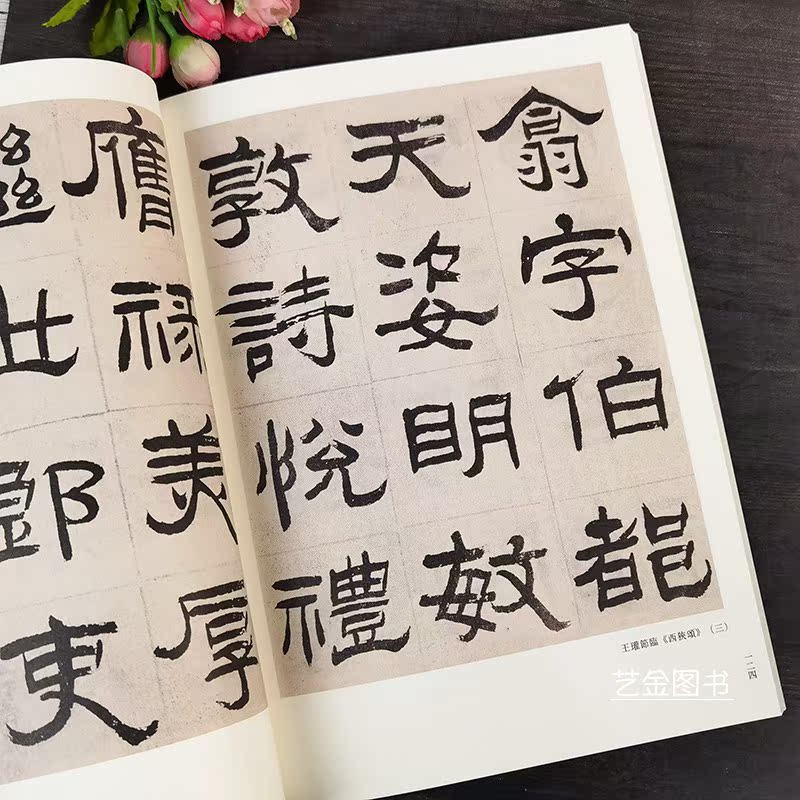 翕字伯都
天姿明敏
敦詩悅禮
膺祿美厚
世郎吏
王瓘節臨《西狹頌》（三）
一二四
艺金图书